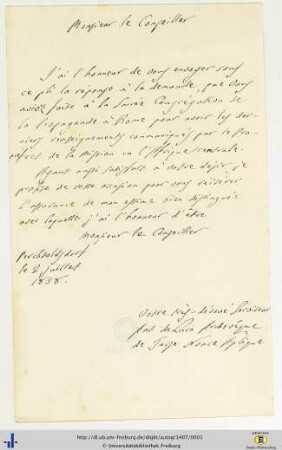 Monsieur le Conseiller
J'ai l'honneur de vous envoyer sous
ce pli la réponse à la demande, que vous
aviez faite à la Sacrée Congrégation de
la Propagande à Rome pour avoir les der-
niers renseignements communiqués par le Pro-
préfet de la Mission en l'Afrique centrale.
Ayant ainsi satisfait à votre désir, je
profite de cette occasion pour vous réitérer
l'assurance de mon estime bien distinguée
avec laquelle j'ai l'honneur d'être
Monsieur le Conseiller
le 2 juillet
1858.
Votre très-dévoué Serviteur
de Luca Archevêque
de Tarse Nonce Aplique
http://dl.ub.uni-freiburg.de/diglit/autogr1407/0001
© Universitätsbibliothek Freiburg